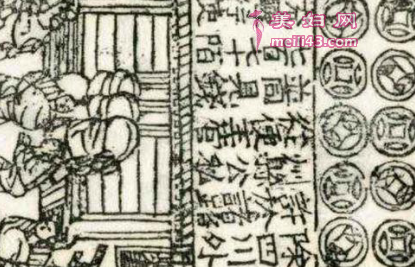 美妇网
meiji43.com
除四川外
許
諸路
州縣公私
從便主管
並同見錢
七百七十